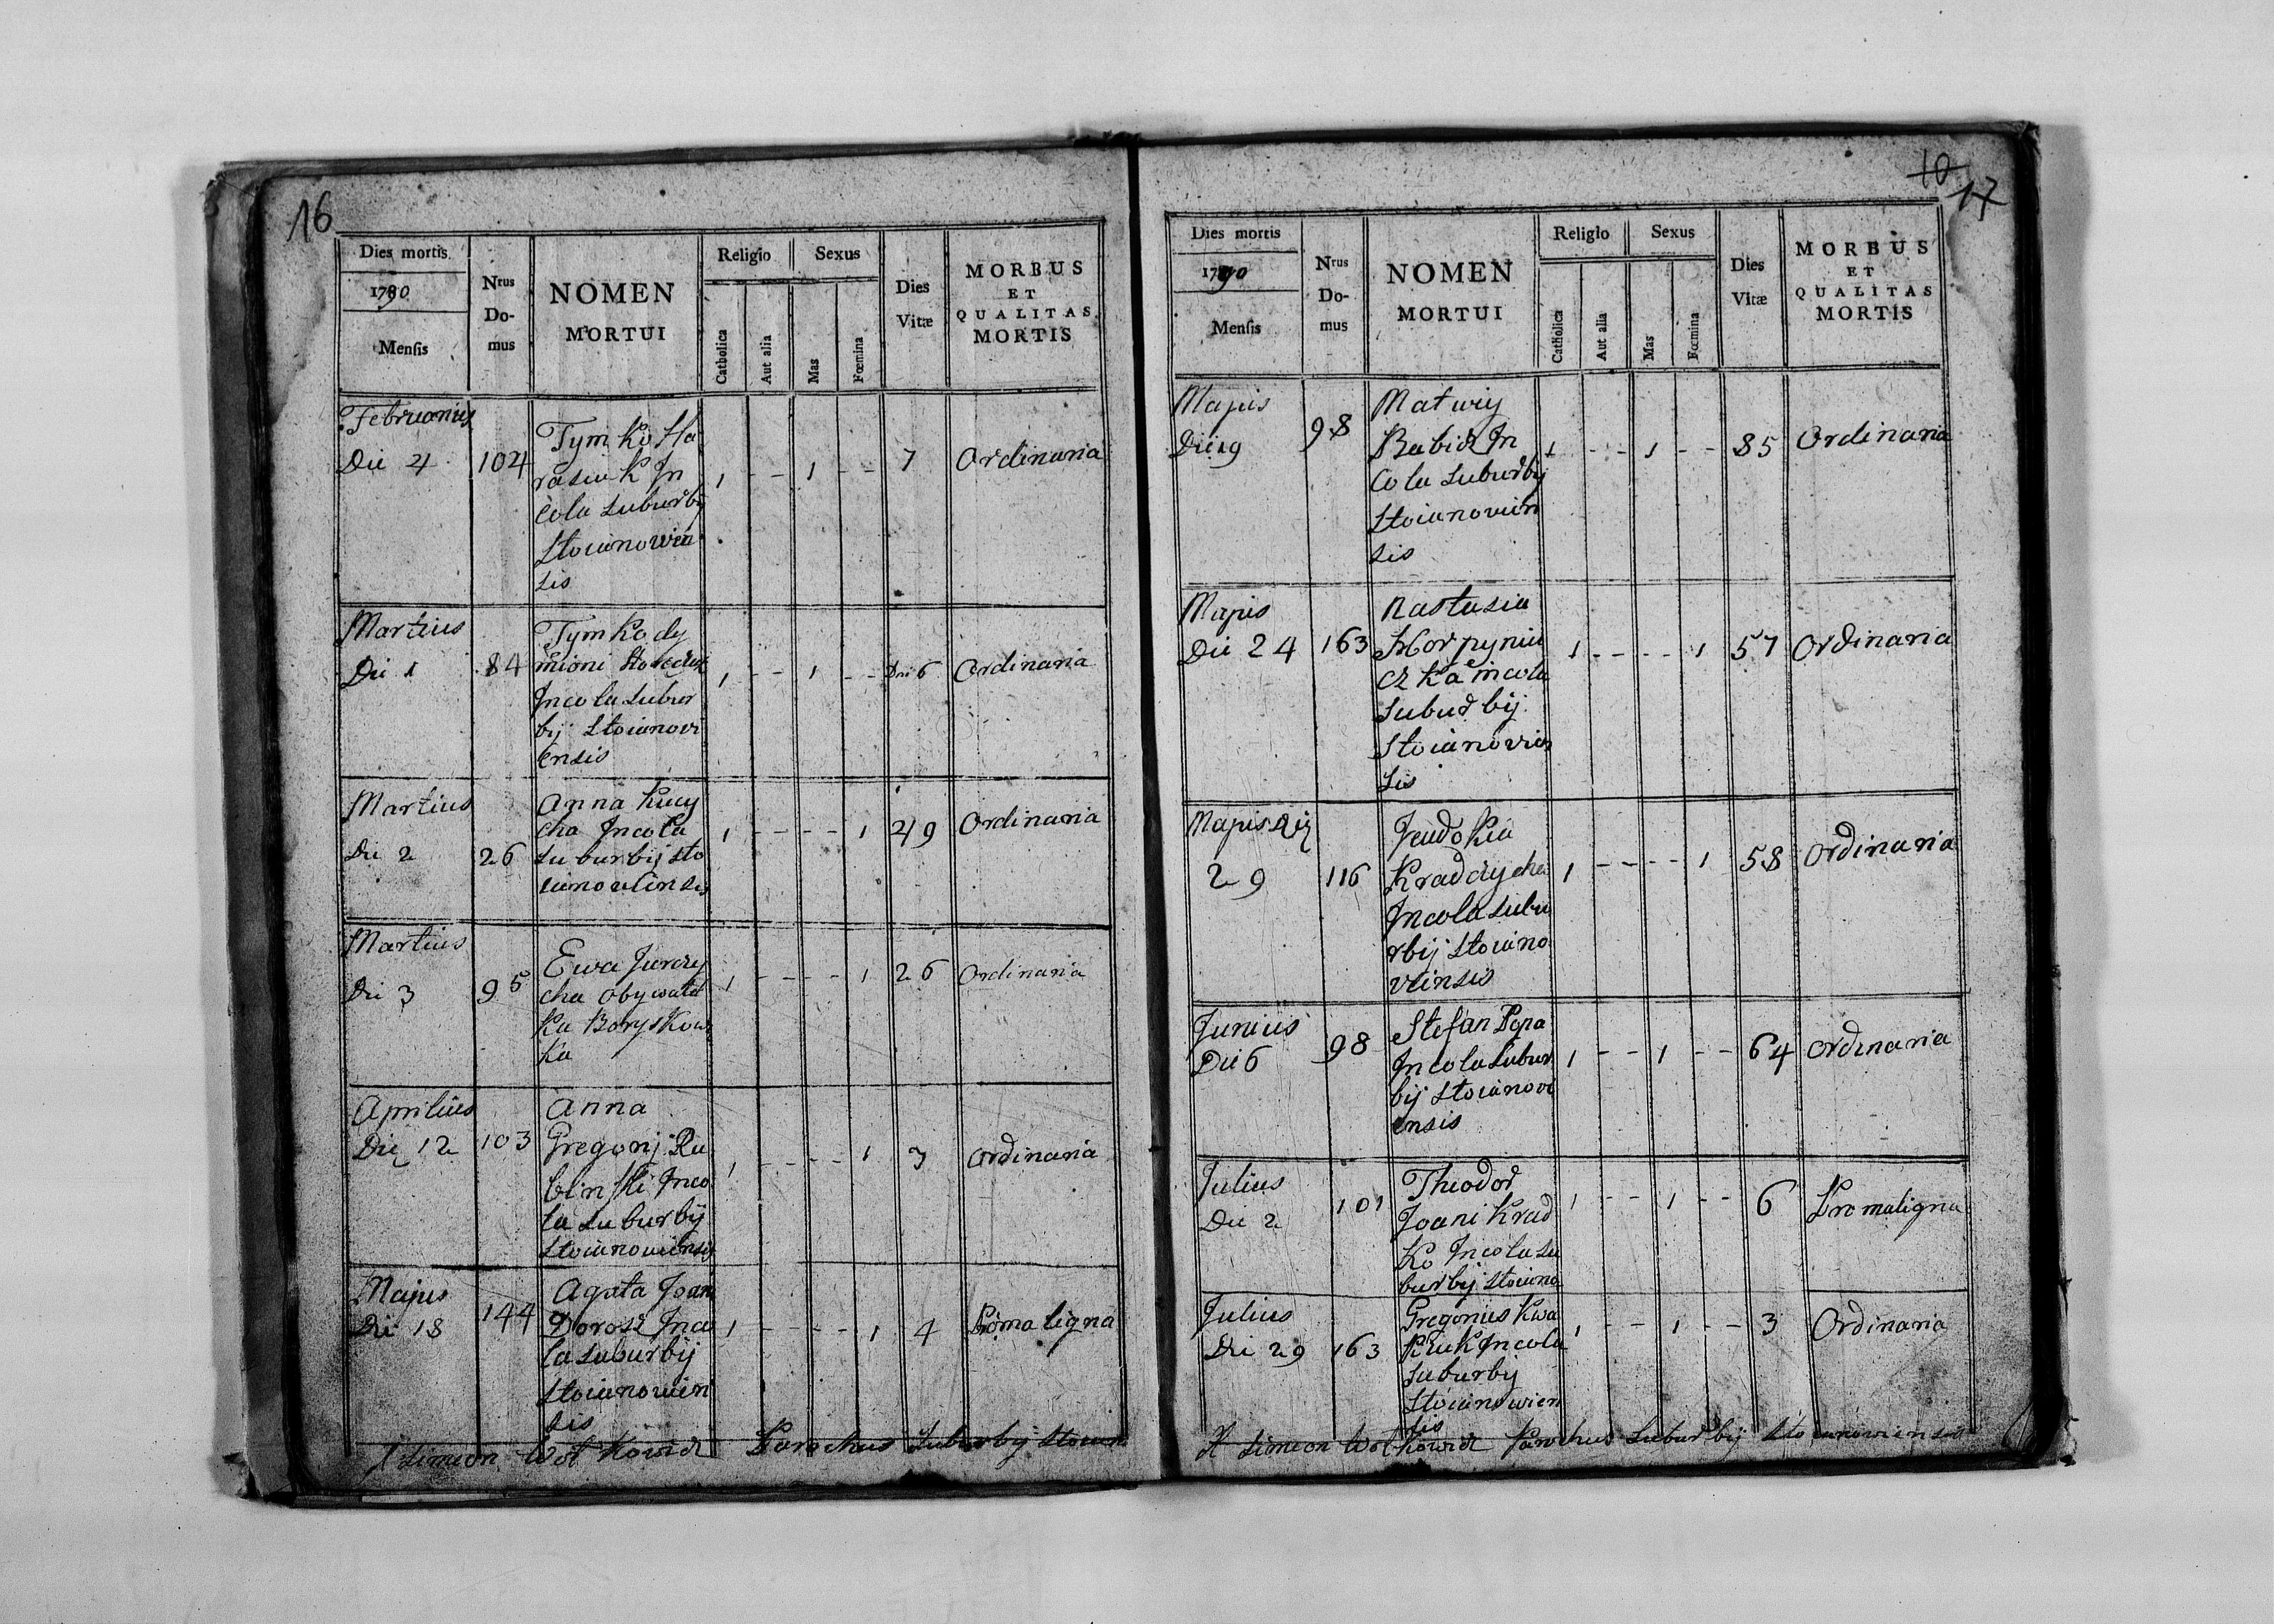 16
Dies mortis
1790
Mensis
Nrus
Do-
mus
NOMEN
MORTUI
Religio
Sexus
Catholica
Aut alia
Mas
Fœmina
Dies
Vitæ
MORBUS
ET
QUALITAS
MORTIS
Februarius
Die 4
104
Tymko Ha
rasiuk In
cola Suburbij
Stoianowien
sis
1 - - 1 - - 7
Ordinaria
Martius
Die 1
84
Tymko dy
mioni
Incola Subur
bij Stoianovi
ensis
1 - - 1 - - Die 6
Ordinaria
Martius
Die 2
26
Anna Kucy
cha Incola
Suburbij Sto
ianoviensis
1 - - - - 1 49
Ordinaria
Martius
Die 3
95
Ewa Jurczy
cha obywatel
ka Boryskow
ka
1 - - - - 1 26
Ordinaria
Aprilius
Die 12
103
Anna
Gregorij Ru
blinski Inco
la Suburbij
Stoianoviensis
1 - - - - 1 3
Ordinaria
Majus
Die 18
144
Agata Joan
Dorosz Inco
la Suburbij
Stoianowien
sis
1 - - - - 1 4
maligna
Simeon Wolkowicz Parochus Suburbij Stoian
10
17
Dies mortis
1790
Mensis
Nrus
Do-
mus
NOMEN
MORTUI
Religio
Sexus
Catholica
Aut alia
Mas
Fœmina
Dies
Vitæ
MORBUS
ET
QUALITAS
MORTIS
Majus
Die 19
98
Matwiy
Babicz In
cola Suburbij
Stoianovien
sis
1 - - 1 - - 85
Ordinaria
Majus
Die 24
163
Nastasia
Horpyniu
czka incola
Suburbij
Stoianovien
sis
1 - - - - 1 57
Ordinaria
Majus Die
29
116
Jeudokia
Kradczycha
Incola Subu
rbij Stoiano
viensis
1 - - - - 1 58
Ordinaria
Junius
Die 6
98
Stefan Pepa
Incola Subur
bij Stoianovi
ensis
1 - - 1 - - 64
Ordinaria
Julius
Die 2
101
Theodor
Joani Krad
ko Incola Su
burbij Stoiano
1 - - 1 - - 6
maligna
Julius
Die 29
163
Gregorius Kwa
Incola
Suburbij
Stoianowien
sis
1 - - 1 - - 3
Ordinaria
Simeon Wolkowicz Parochus Suburbij Stoianowiensis